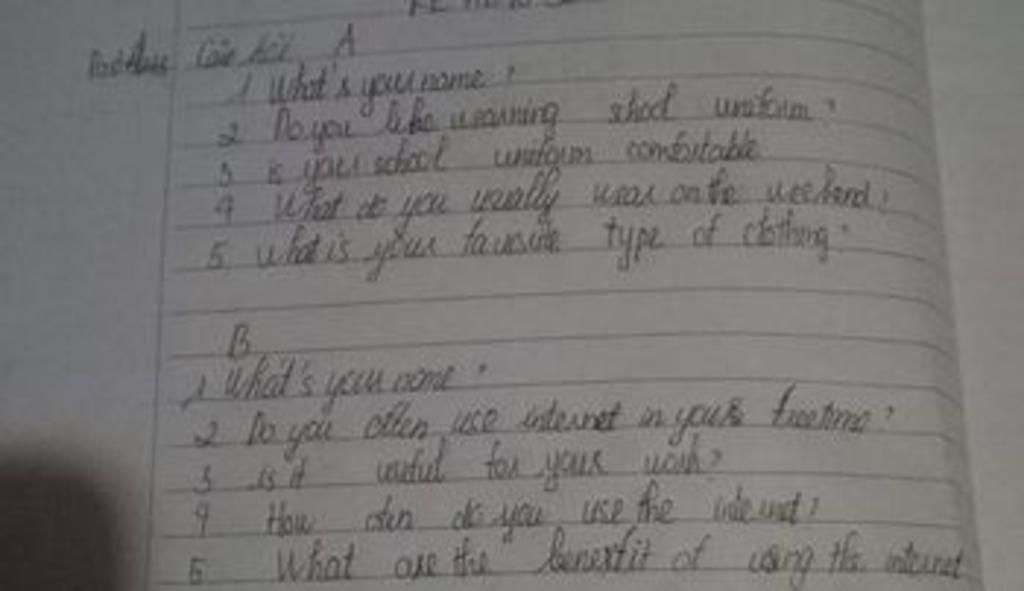 Câu hỏi A
1 What's your name ?
2 Do you like wearning shool uniform ?
3 is your school uniform comfortable
4 What do you usually wear on the weekend ?
5 What is your favourite type of clothing ?
B
1 What's your name ?
2 Do you often use internet in your freetime ?
3 is it useful for your work ?
4 How often do you use the internet ?
5 What are the benexfit of using the internet